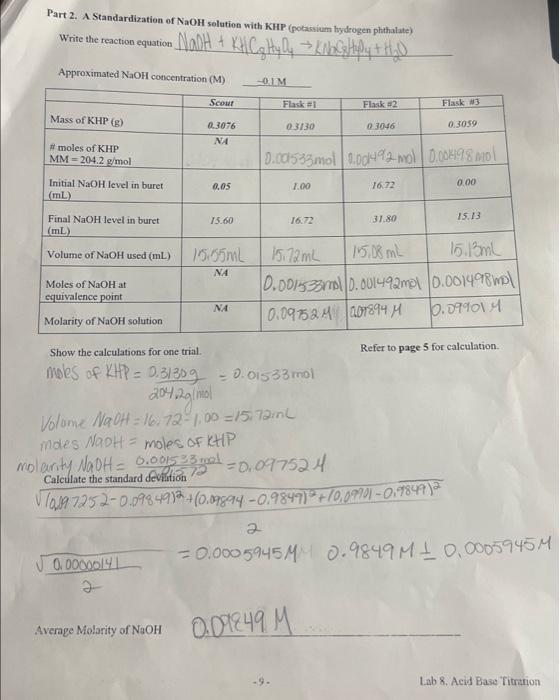 Part 2. A Standardization of NaOH solution with KHP (potassium hydrogen phthalate)
Write the reaction equation NaOH + KHC8H4O4 → KNaC8H4O4 + H2O
Approximated NaOH concentration (M) ~0.1 M
Scout Flask #1 Flask #2 Flask #3
Mass of KHP (g) 0.3076 0.3130 0.3046 0.3059
# moles of KHP MM = 204.2 g/mol NA 0.001533mol 0.001492 mol 0.001498 mol
Initial NaOH level in buret (mL) 0.05 1.00 16.72 0.00
Final NaOH level in buret (mL) 15.60 16.72 31.80 15.13
Volume of NaOH used (mL) 15.55mL 15.72mL 15.08 mL 15.13mL
Moles of NaOH at equivalence point NA 0.001533mol 0.001492mol 0.001498mol
Molarity of NaOH solution NA 0.09752 M 0.09894 M 0.09901 M
Show the calculations for one trial. Refer to page 5 for calculation.
moles of KHP = 0.3130g / 204.2g/mol = 0.01533mol
Volume NaOH = 16.72-1.00 = 15.72mL
moles NaOH = moles of KHP
molarity NaOH = 0.001533mol = 0.09752 M
Calculate the standard deviation
√(0.097252-0.09849)² + (0.09894-0.9849)² + (0.09901-0.9849)²
2
√0.00000141 = 0.0005945M 0.9849 M ± 0.0005945M
2
Average Molarity of NaOH 0.09849 M
-9- Lab 8. Acid Base Titration